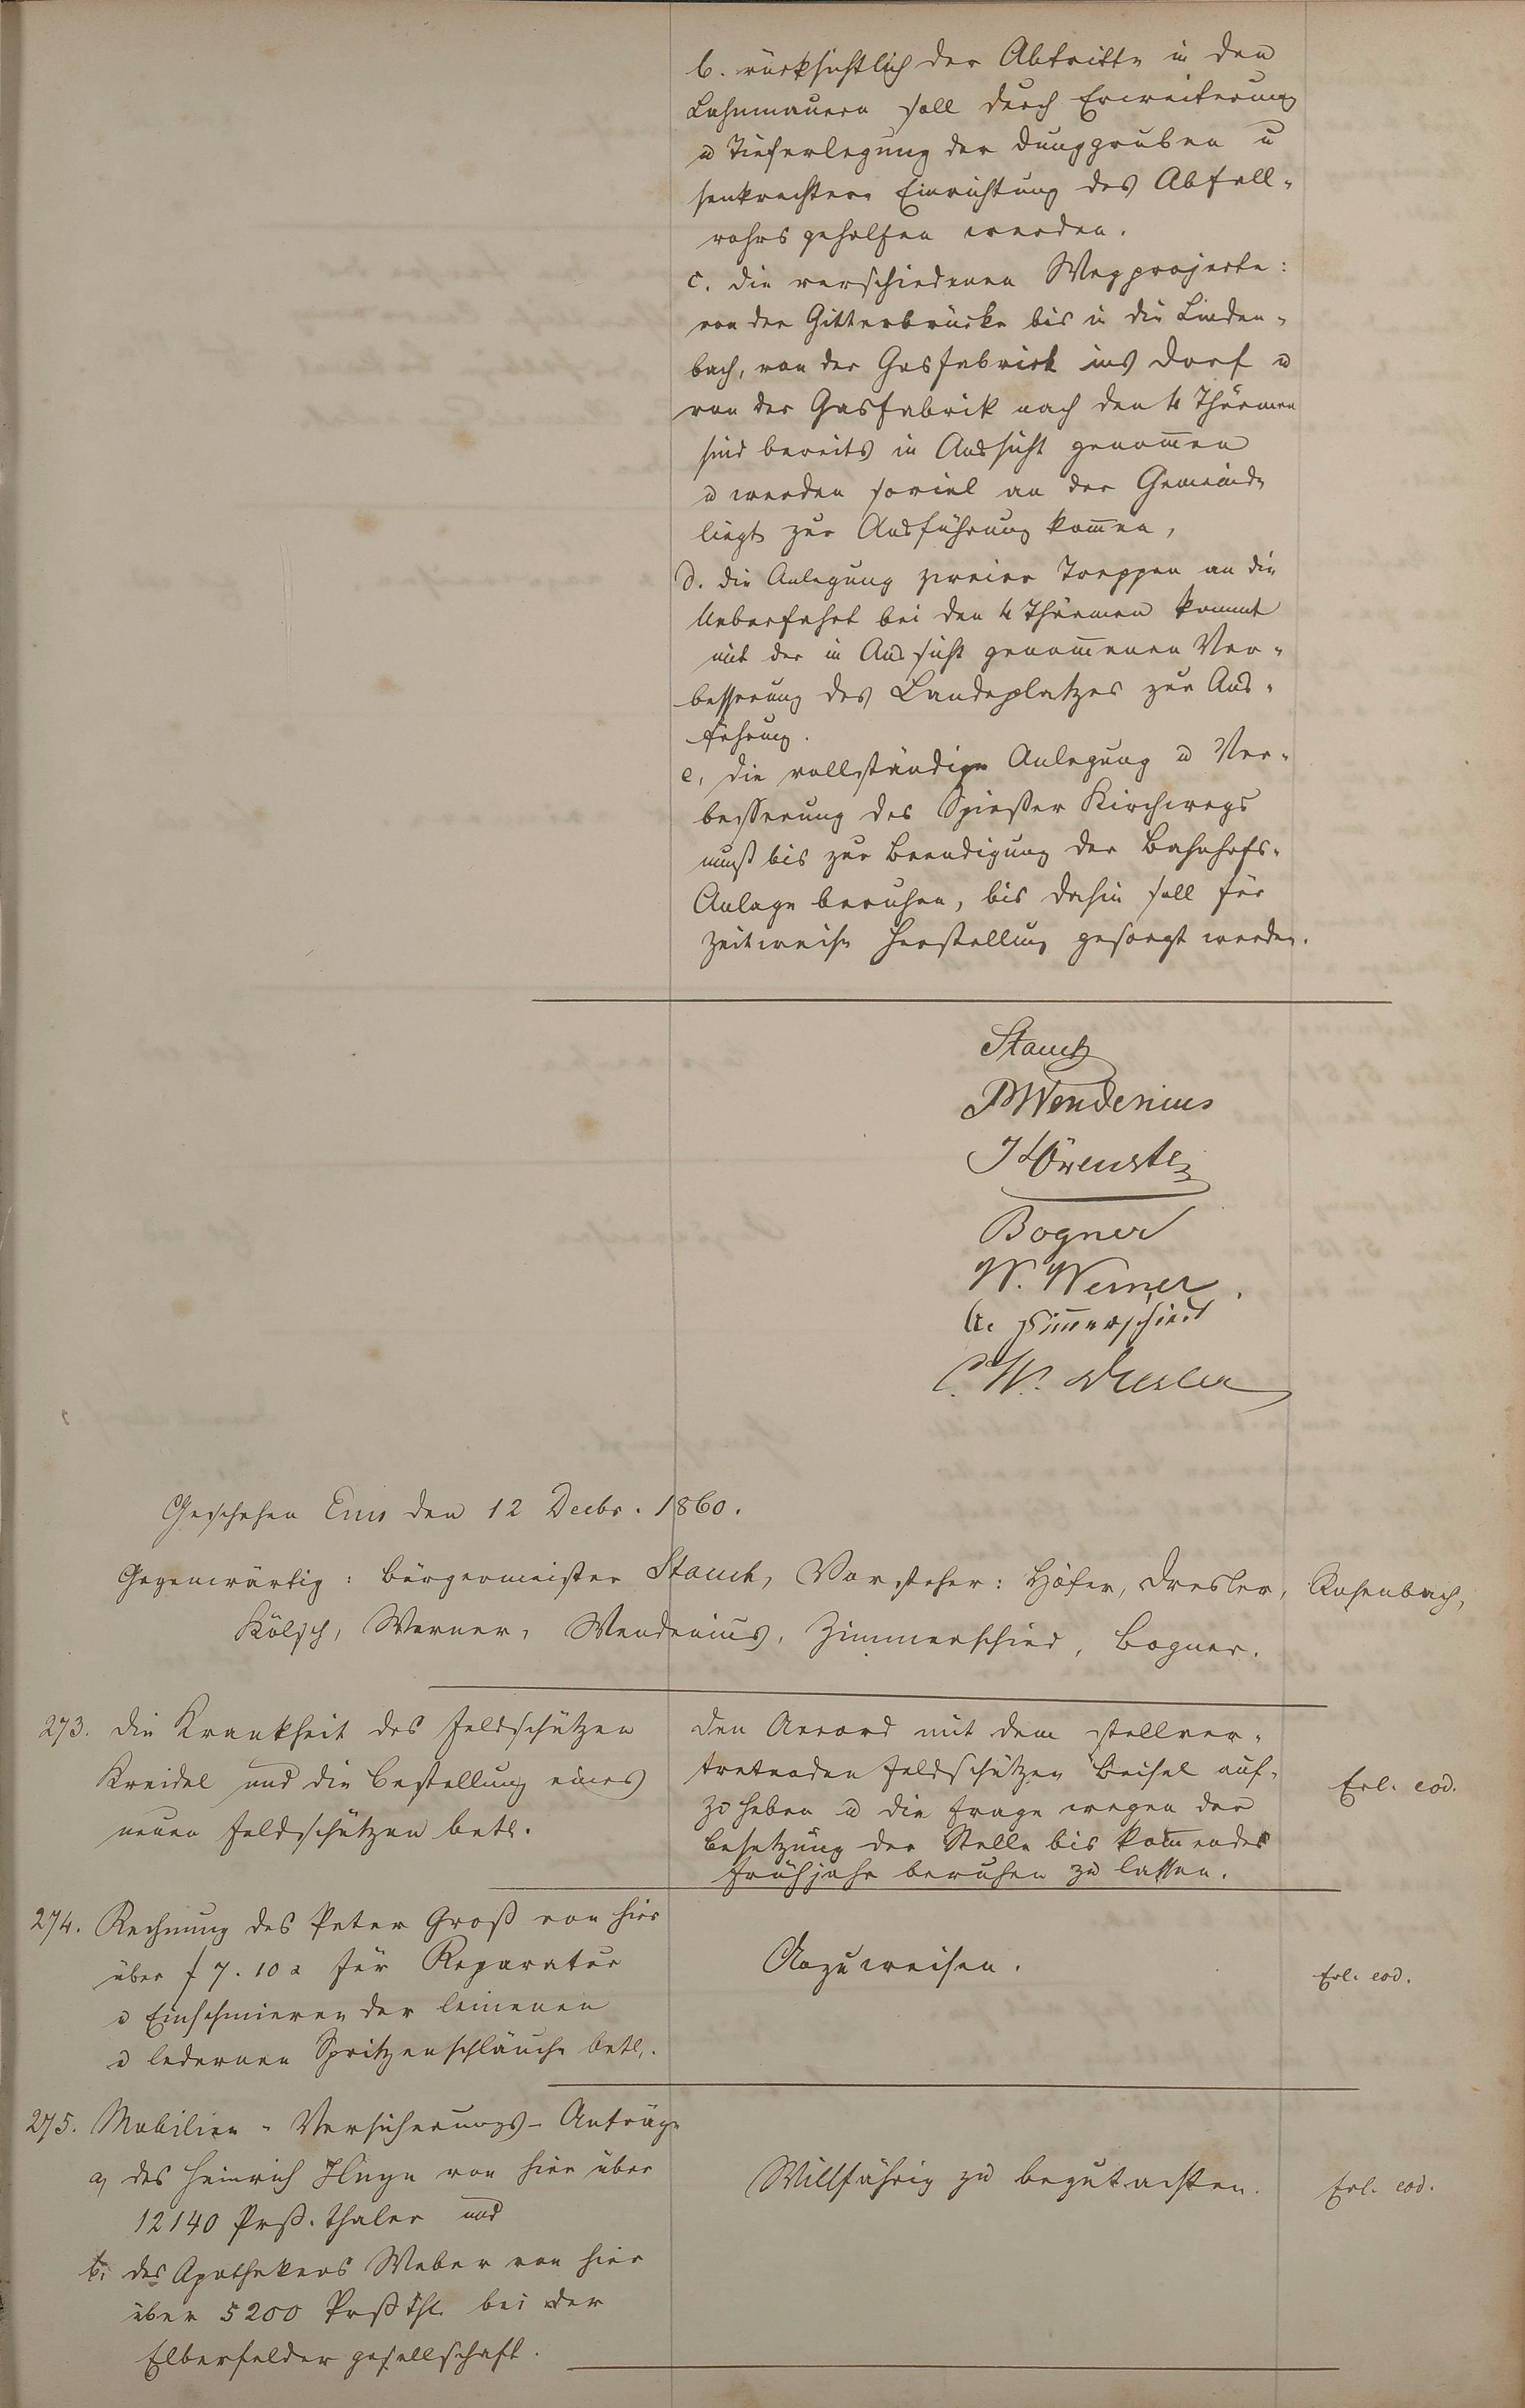 b. rücksichtlich der Abtritte in den
Lahnmauern soll durch Erweiterung
u Tieferlegung der Dunggruben u
senkrechtere Einrichtung des Abfall-
rohrs geholfen werden.
c. die verschiedenen Wegprojecte:
von der Gitterbrücke bis in die Linden-
bach, von der Gasfabrick ins Dorf u
von der Gasfabrik nach den 4 Thürmen
sind bereits in Aussicht genom̅en
u werden soviel an der Gemeinde
liegt zur Ausführung kom̅en,
d. die Anlegung zweier Treppen an die
Ueberfahrt bei den 4 Thürmen kommt
mit der in Aussicht genom̅enen Ver-
besserung des Landeplatzes zur Aus-
führung.
e, die vollständige Anlegung u Ver-
besserung des Spießer Kirchwegs
muß bis zur Beendigung der Bahnhofs-
Anlage beruhen, bis dahin soll für
zeitweise Herstellung gesorgt werden.
Stauch
Wendenius
Bogner
W. Werner.
Zim̅erschied
C. W. Dresler
Geschehen Ems den 12 Decbr. 1860.
Gegenwärtig: Bürgermeister Stauch, Vorsteher: Höfer, Dresler, Rosenbach,
Kölsch, Werner, Wendenius, Zimmerschied, Bogner.
273. Die Krankheit des Feldschützen
Kreidel und die Bestellung eines
neuen Feldschützen betr.
Den Accord mit dem stellver-
tretenden Feldschützen Beisel auf-
zu heben u die Frage wegen der
Besetzung der Stelle bis kom̅endes
Frühjahr beruhen zu lassen.
Erl. eod.
274. Rechnung des Peter Groß von hier
über f 7. 10 x für Reparatur
u Einschmieren der leinenen
u ledernen Spritzenschläuche betr.
Anzuweisen.
Erl. eod.
275. Mobilien-Versicherungs-Anträge
a, des Heinrich Huyn von hier über
12140 Prß. Thaler und
b, des Apothekers Weber von hier
über 5200 Prß Thl. bei der
Elberfelder Gesellschaft.
Willfährig zu begutachten.
Erl. eod.